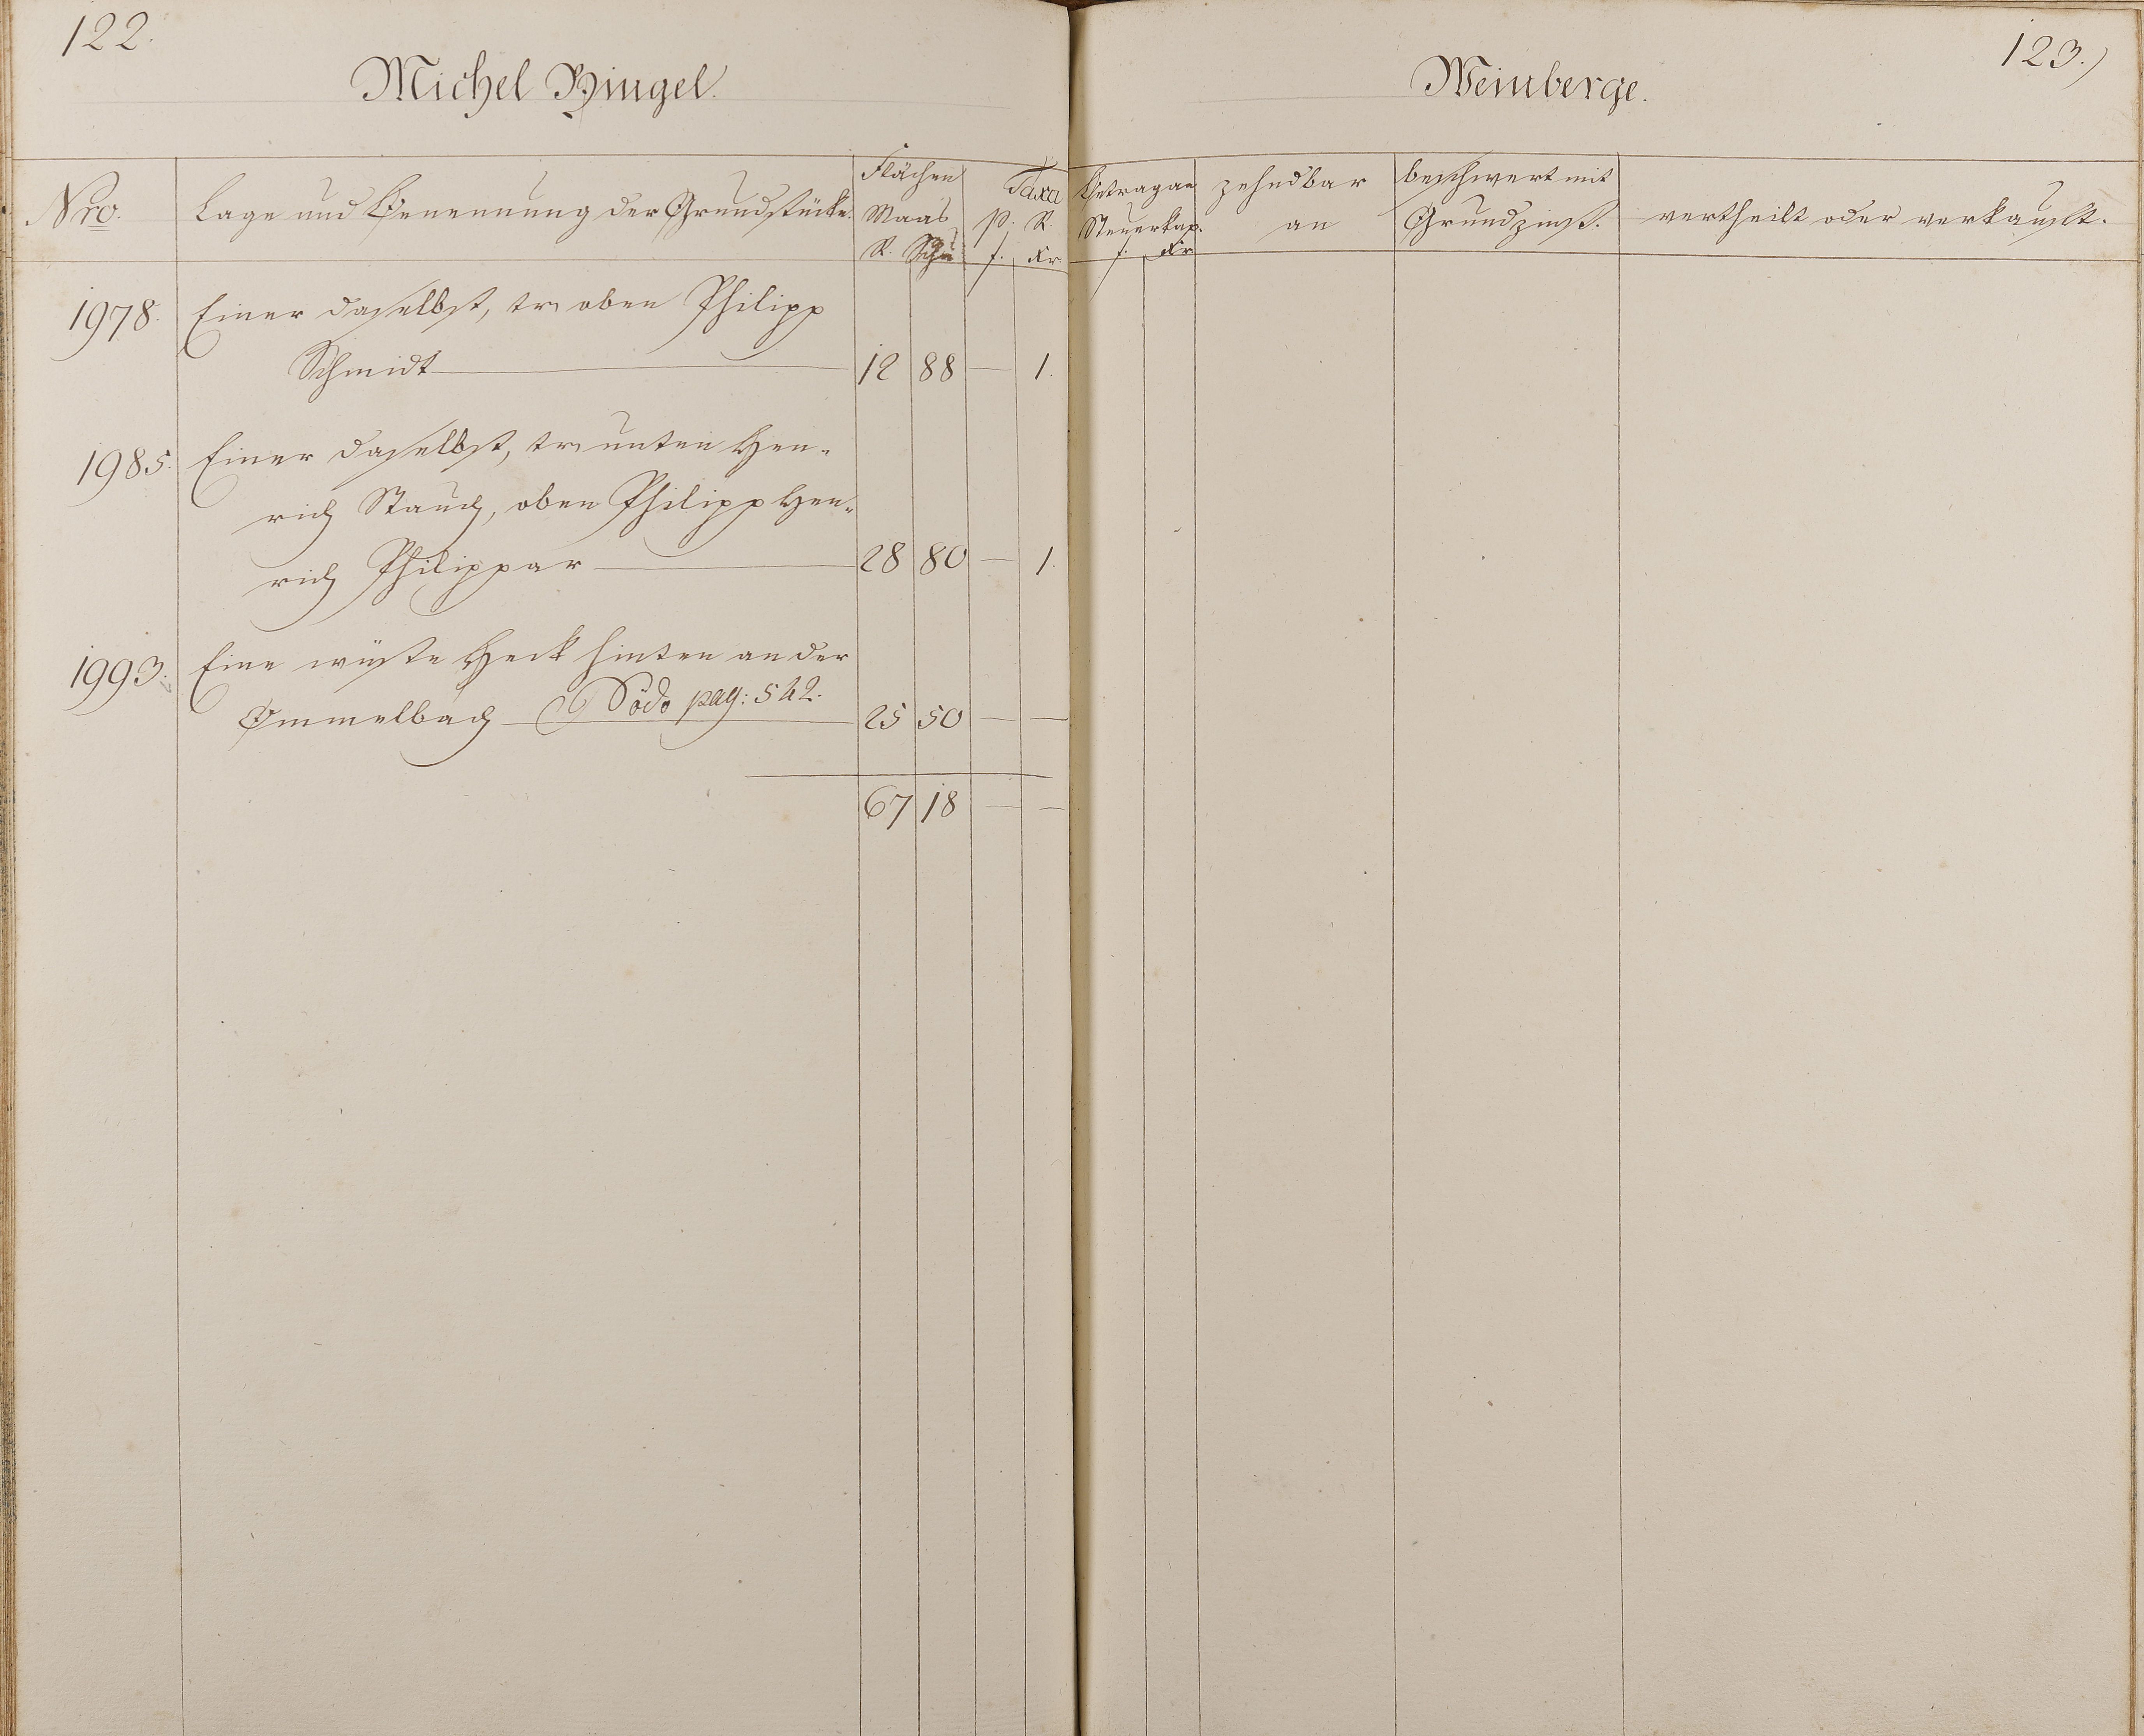 122.
Michel Bingel.
Nro.
Lage und Benennung der Grundstücke.
Flächen
Maas
R. Schu
Taxa
p. R.
f. Kr
1978. Einer daselbst, tr oben Philipp
Schmidt 12 88 — 1.
1985. Einer daselbst, tr unten Hen-
rich Stauch, oben Philipp Hen-
rich Philippar 28 80 — 1.
1993. Eine wüste Heck hinten an der
Ommelbach pag: 542. 25 50 — —
67 18 — —
123.)
Weinberge.
Betrag an
Steuerkap.
f. Kr
zehndbar
an
beschwert mit
Grundzinß.
vertheilt oder verkauft.